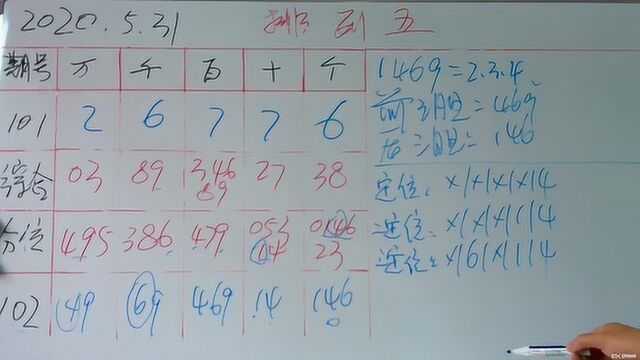 2020.5.31 排列五
期号 万 千 百 十 个
101 2 6 7 7 6
综合 03 89 346 27 38
89
分位 495 386 479 053 0146
14 23
102 149 69 469 14 146
1469=2.3.4
前三胆=469
后三胆=146
定位:X|X|X|X|4
定位:X|X|X|1|4
定位:X|6|X|1|4